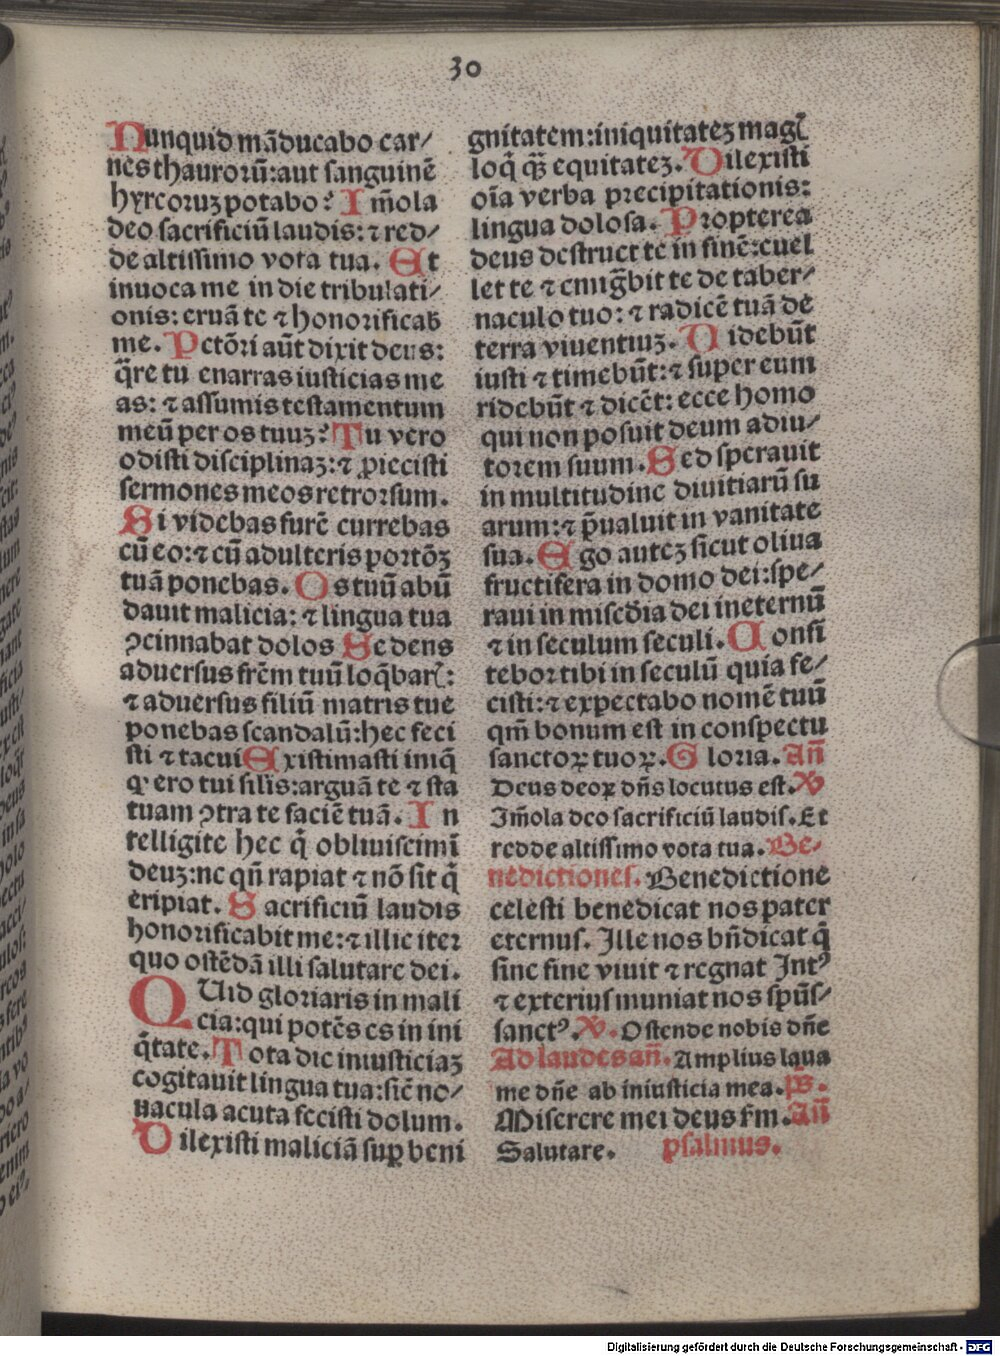 30
Nunquid mãducabo car/
nes thaurorũ:aut sanguinẽ
hyrcoruꝫ potabo? Im̃ola
deo sacrificiũ laudis: ⁊ red/
de altissimo vota tua. Et
inuoca me in die tribulati/
onis: eruã te ⁊ honorificab̃
me. Pctõri aũt dixit deus:
q̃re tu enarras iusticias me
as: ⁊ assumis testamentum
meũ per os tuuꝫ? Tu vero
odisti disciplinaꝫ:⁊ ꝓiecisti
sermones meos retrorsum.
Si videbas furẽ currebas
cũ eo:⁊ cũ adulteris portõꝫ
tuã ponebas. Os tuũ abũ
dauit malicia: ⁊ lingua tua
ꝯcinnabat dolos Sedens
aduersus frẽm tuũ loq̃bar̃:
⁊ aduersus filiũ matris tue
ponebas scandalũ:hec feci
sti ⁊ tacui Existimasti iniq̃
ꝙ ero tui silis:arguã te ⁊ sta
tuam ꝯtra te faciẽ tuã. In
telligite hec q̃ obliuiscimĩ
deuꝫ:ne qñ rapiat ⁊ nõ sit q̃
eripiat. Sacrificiũ laudis
honorificabit me:⁊ illic iter
quo ostẽdã illi salutare dei.
QUid gloriaris in mali
cia:qui potẽs es in ini
q̃tate. Tota die iniusticiaꝫ
cogitauit lingua tua:sic̃ no/
uacula acuta fecisti dolum.
Dilexisti maliciã suꝑ beni
gnitatem:iniquitateꝫ magꝭ
loq̃ qꝫ̃ equitateꝫ. Dilexisti
oĩa verba precipitationis:
lingua dolosa. Propterea
deus destruet te in finẽ:euel
let te ⁊ emig̃bit te de taber/
naculo tuo: ⁊ radicẽ tuã de
terra viuentiuꝫ. Videbũt
iusti ⁊ timebũt:⁊ super eum
ridebũt ⁊ dicẽt: ecce homo
qui non posuit deum adiu/
torem suum. Sed sperauit
in multitudine diuitiarũ su
arum:⁊ p̃ualuit in vanitate
sua. Ego auteꝫ sicut oliua
fructifera in domo dei:spe/
raui in misc̃dia dei in eternũ
⁊ in seculum seculi. Confi
tebor tibi in seculũ quia fe/
cisti:⁊ expectabo nomẽ tuũ
qm̃ bonum est in conspectu
sanctoꝝ tuoꝝ. Gloria. Añ
Deus deoꝝ dñs locutus est. ℣
Im̃ola deo sacrificiũ laudis. Et
redde altissimo vota tua. Be/
nedictiones. Benedictione
celesti benedicat nos pater
eternus. Ille nos bñdicat q̃
sine fine viuit ⁊ regnat Intꝰ
⁊ exterius muniat nos spũs/
sanctꝰ. ℣. Ostende nobis dñe
Ad laudes añ. Amplius laua
me dñe ab iniusticia mea. ps̃.
Miserere mei deus s̃m. Añ
Salutare. psalmus.
Digitalisierung gefördert durch die Deutsche Forschungsgemeinschaft - DFG